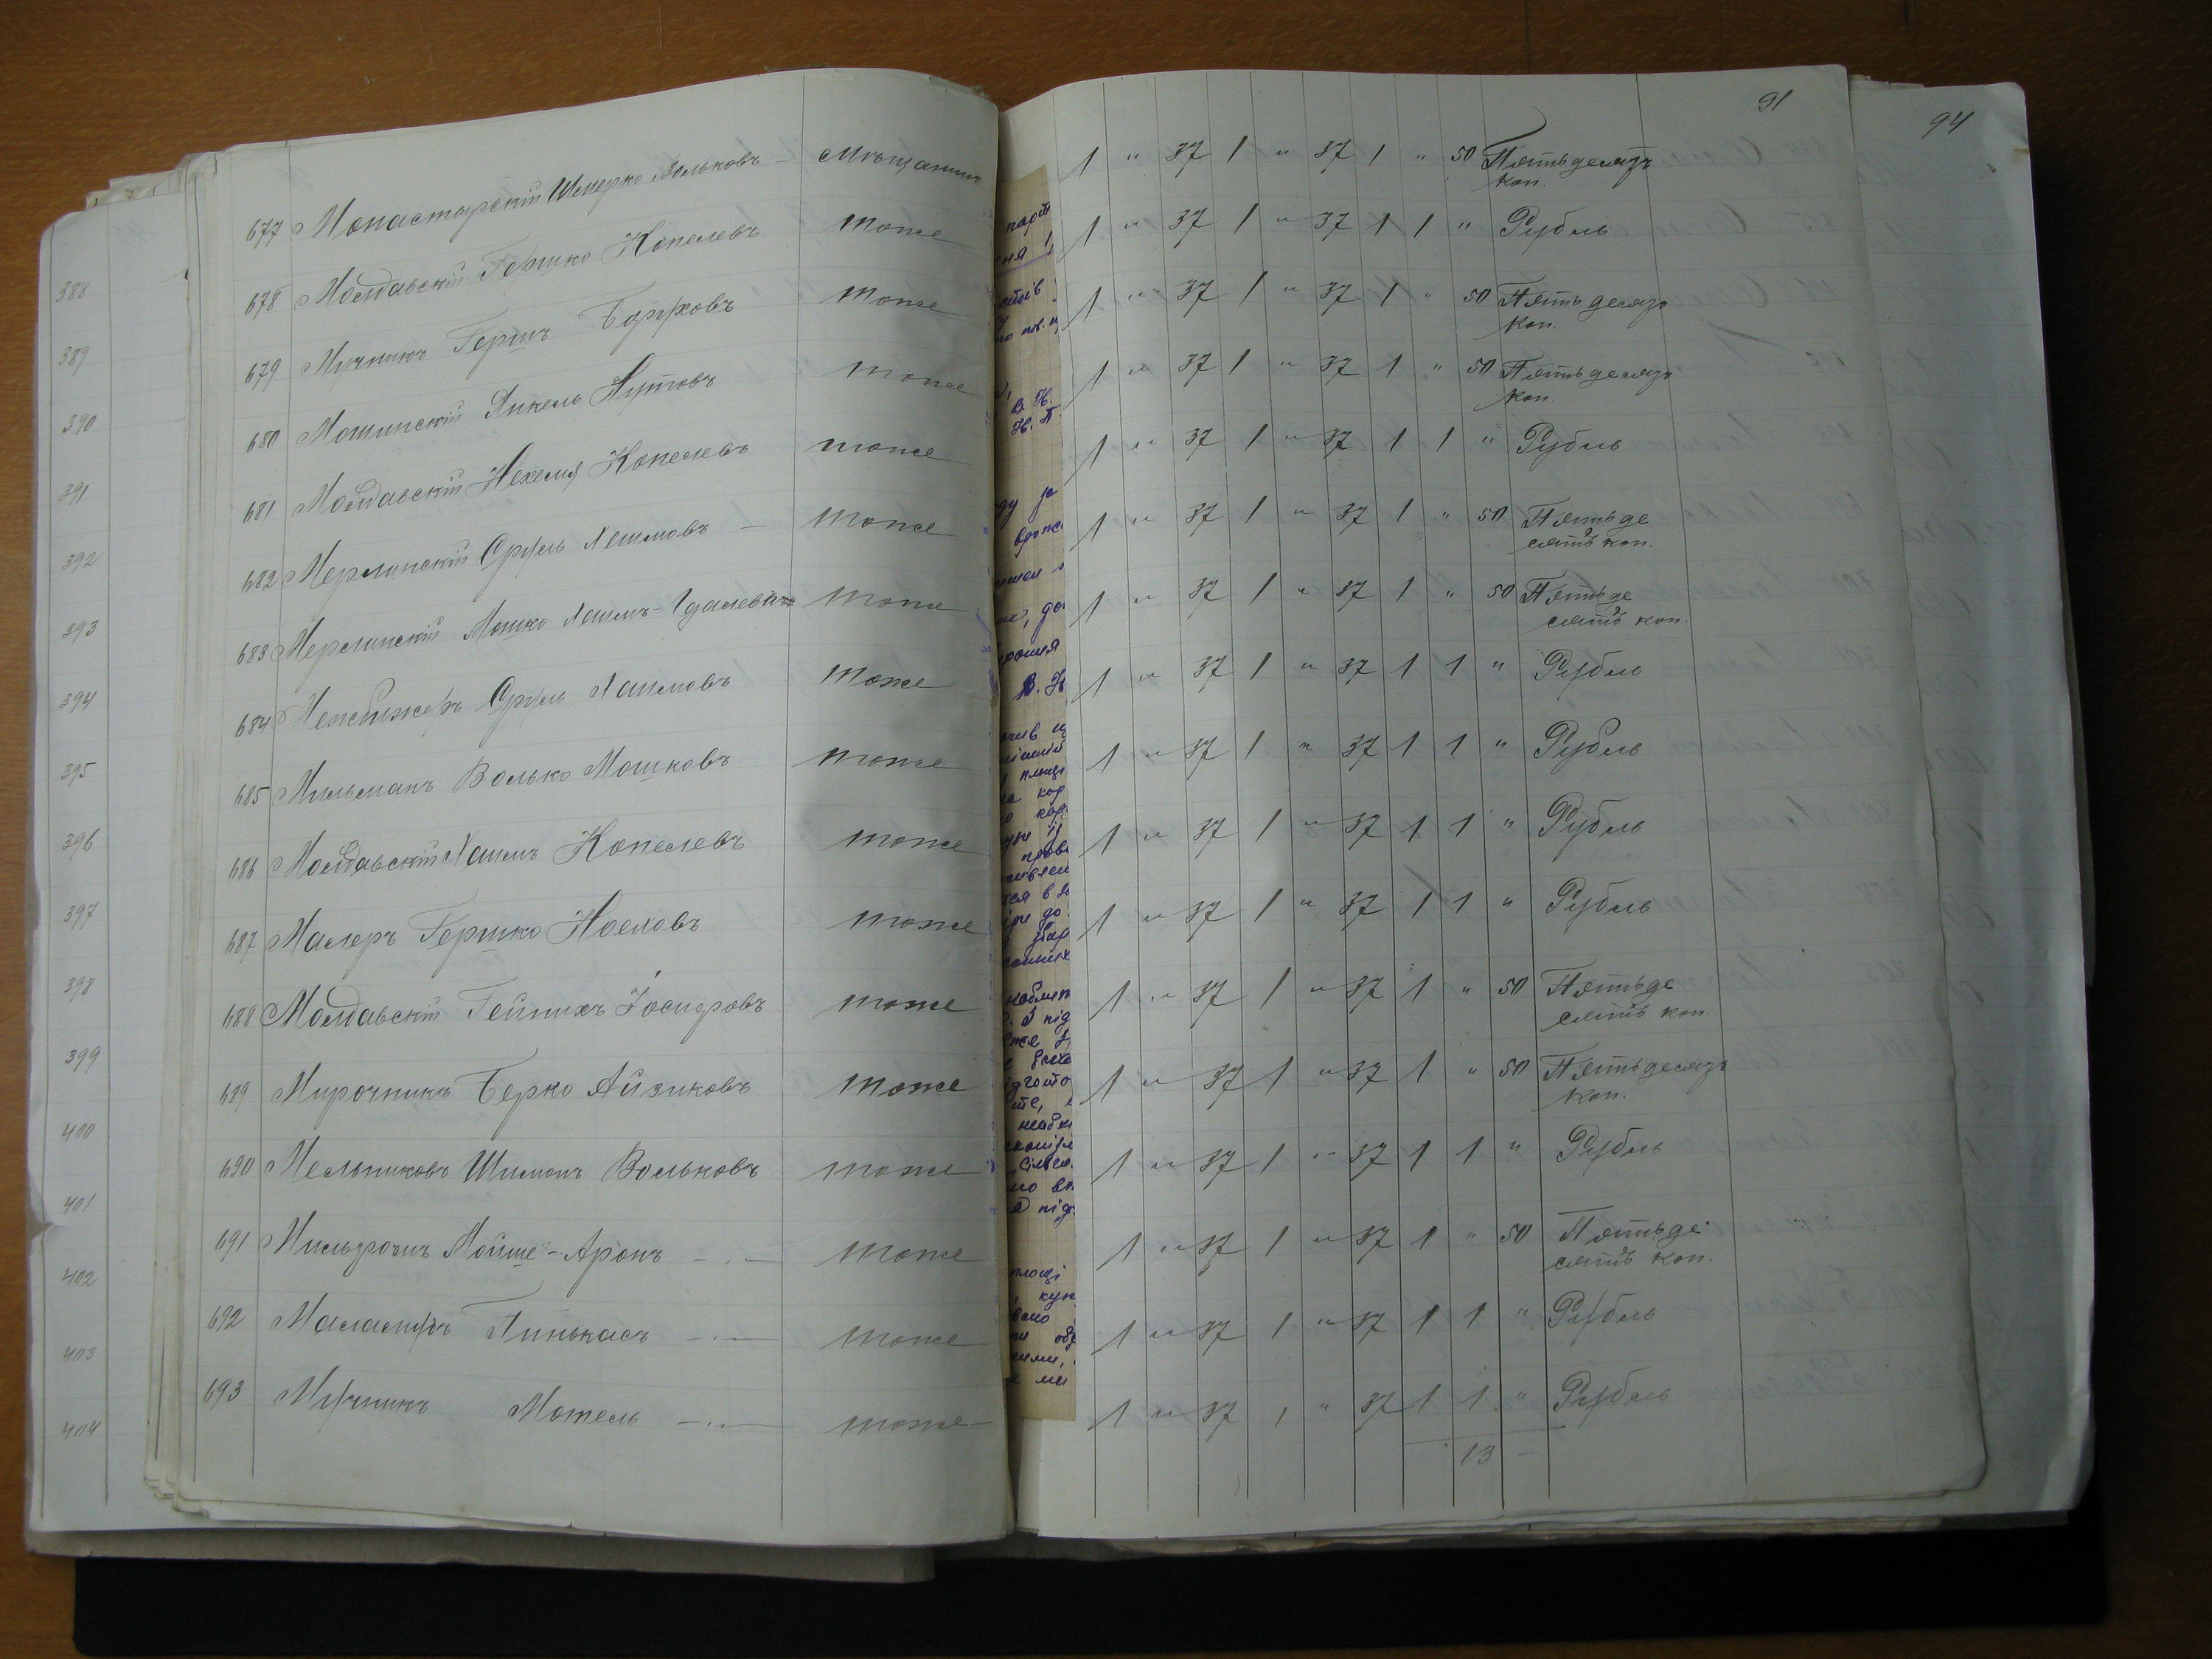 91
94
677 Монастырскій Шмерко Вольковъ — мѣщанинъ 1 " 37 1 " 37 1 " 50 Пятьдесятъ
коп.
678 Молдавскій Гершко Копелевъ тоже 1 " 37 1 " 37 1 1 " Рубль
679 Мучникъ Гершъ Боруховъ тоже 1 " 37 1 " 37 1 " 50 Пятьдесятъ
коп.
680 Мошинскій Янкель Нутовъ тоже 1 " 37 1 " 37 1 " 50 Пятьдесятъ
коп.
681 Молдавскій Нехемія Копелевъ тоже 1 " 37 1 " 37 1 1 " Рубль
682 Мерлинскій Сруль Хаимовъ — тоже 1 " 37 1 " 37 1 " 50 Пятьде
сятъ коп.
683 Мерлинскій Мошко Хаимъ-Идалевъ тоже 1 " 37 1 " 37 1 " 50 Пятьде
сятъ коп.
684 Межбижеръ Сруль Хаимовъ тоже 1 " 37 1 " 37 1 1 " Рубль
685 Мильманъ Волько Мошковъ тоже 1 " 37 1 " 37 1 1 " Рубль
686 Молдавскій Хаимъ Копелевъ тоже 1 " 37 1 " 37 1 1 " Рубль
687 Малеръ Гершко Ноеховъ тоже 1 " 37 1 " 37 1 1 " Рубль
688 Молдавскій Гейнихъ Іосифовъ тоже 1 " 37 1 " 37 1 " 50 Пятьде
сятъ коп.
689 Мирочникъ Берко Айзиковъ тоже 1 " 37 1 " 37 1 " 50 Пятьдесятъ
коп.
690 Мельниковъ Шимонъ Вольковъ тоже 1 " 37 1 " 37 1 1 " Рубль
691 Мойше-Аронъ — . — тоже 1 " 37 1 " 37 1 " 50 Пятьде
сятъ коп.
692 Маламудъ Пинькасъ — . — тоже 1 " 37 1 " 37 1 1 " Рубль
693 Мучникъ Мотель — . — тоже 1 " 37 1 " 37 1 1 " Рубль
13 —
388
389
390
391
392
393
394
395
396
397
398
399
400
401
402
403
404